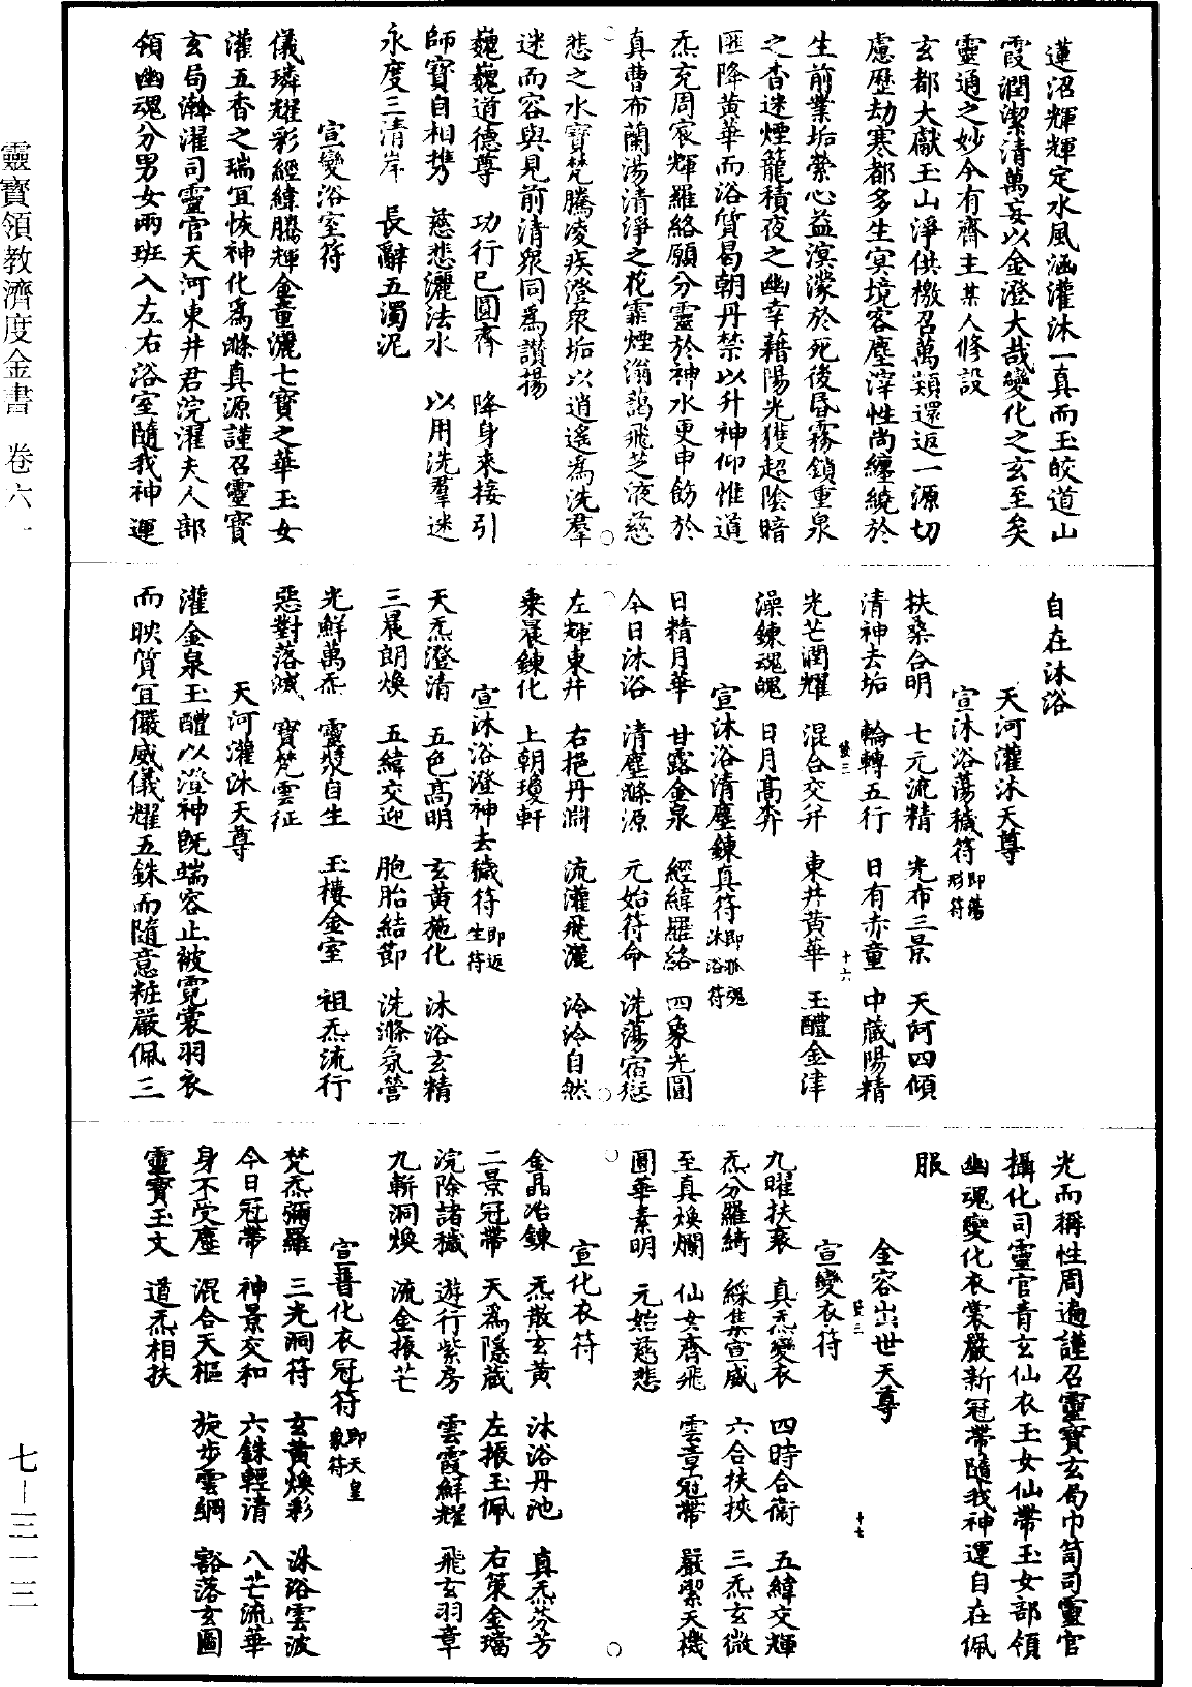 蓮沼輝輝定水風涵灌沐一真而玉皎道山
霞潤潔清萬妄以金澄大哉變化之玄至矣
靈通之妙今有齊主某人修設
玄都大獻玉山淨供檄召萬類還返一源切
慮歷劫寒都多生冥境客塵滓性尚纏繞於
生前業垢縈心益溟濛於死後昏霧鎖重泉
之杳迷煙籠積夜之幽幸藉陽光獲超陰暗
匪降黄華而浴質曷朝丹禁以升神仰惟道
炁充周宸輝羅絡願分靈於神水更申飭於
真曹布蘭湯清淨之花霏煙滃藹飛芝液慈
悲之水寶梵騰凌疾澄泉垢以逍遙為洗羣
迷而容與見前清衆同為讚揚
巍巍道德尊　功行已圓齊　降身來接引
師寶自相携　慈悲灑法水　以用洗羣迷
永度三清岸　長辭五濁泥
宣變浴室符
儀璘耀彩經緯騰輝金童灑七寶之華玉女
灌五香之瑞宜恢神化為滌真源謹召靈寶
玄局瀚濯司靈官天河東井君浣濯夫人部
領幽魂分男女兩班入左右浴室隨我神運
自在沐浴
天河灌沐天尊
宣沐浴蕩穢符即蕩形符
扶桑合明　七元流精　光布三景　天河四傾
清神去垢　輪轉五行　日有赤童　中藏陽精
光芒潤耀　混合交并　東井黄華　玉醴金津
澡鍊魂魄　日月高奔
宣沐浴清塵鍊真符即孤魂沐浴符
日精月華　甘露金泉　經緯羅絡　四象光圓
今日沐浴　清塵滌源　元始符命　洗蕩宿愆
左輝東井　右挹丹淵　流灌飛灑　泠泠自然
乘晨鍊化　上朝瓊軒
宣沐浴澄神去穢符即返生符
天炁澄清　五色高明　玄黄施化　沐浴玄精
三晨朗煥　五緯交迎　胞胎結節　洗滌氛營
光鮮萬炁　靈漿自生　玉樓金室　祖炁流行
惡對落滅　寶梵雲征
天河灌沐天尊
灌金泉玉醴以澄神既端容止被霓裳羽衣
而映質宜儼威儀耀五銖而隨意粧嚴佩三
光而稱性周遍謹召靈寶玄局巾笥司靈官
攝化司靈官青玄仙衣玉女仙帶玉女部領
幽魂變化衣裳嚴新冠帶隨我神運自在佩
服
金容出世天尊
宣變衣符
九曜扶衰　真炁變衣　四時合衛　五緯交輝
炁分羅綺　綵集宣威　六合扶挾　三炁玄微
至真煥爛　仙女齊飛　雲章冠帶　嚴潔天機
圓華素明　元始慈悲
宣化衣符
金晶冶鍊　炁散玄黄　沐浴丹池　真炁芬芳
二景冠帶　天為隱藏　左振玉佩　右策金璫
浣除諸穢　遊行紫房　雲霞鮮耀　飛玄羽章
九斬洞煥　流金振芒
宣普化衣冠符即天皇象符
梵炁彌羅　三光洞符　玄黄煥彩　沐浴雲波
今日冠帶　神景交和　六銖輕清　八芒流華
身不受塵　混合天樞　旋步雲綱　豁落玄圖
靈寶玉文　道炁相扶
靈寶領教濟度金書　卷六一
七—三一三